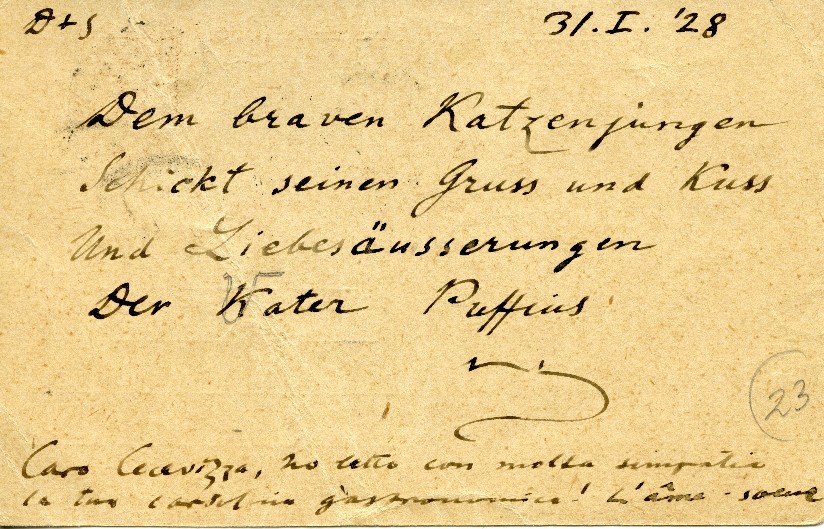 D+S 31.I.'28
Dem braven Katzenjungen
Schickt seinen Gruss und Kuss
Und Liebesäusserungen
Der Kater Puffius
23
Caro ho letto con molta simpatia
la tua cartolina gastronomica! L'âme-soeur